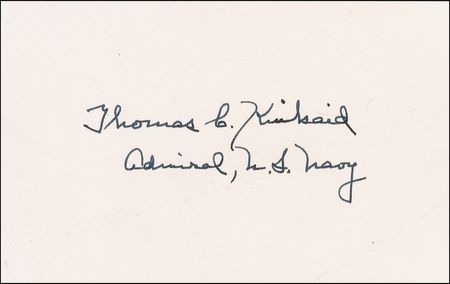 Thomas C. Kinkaid
Admiral, U.S. Navy